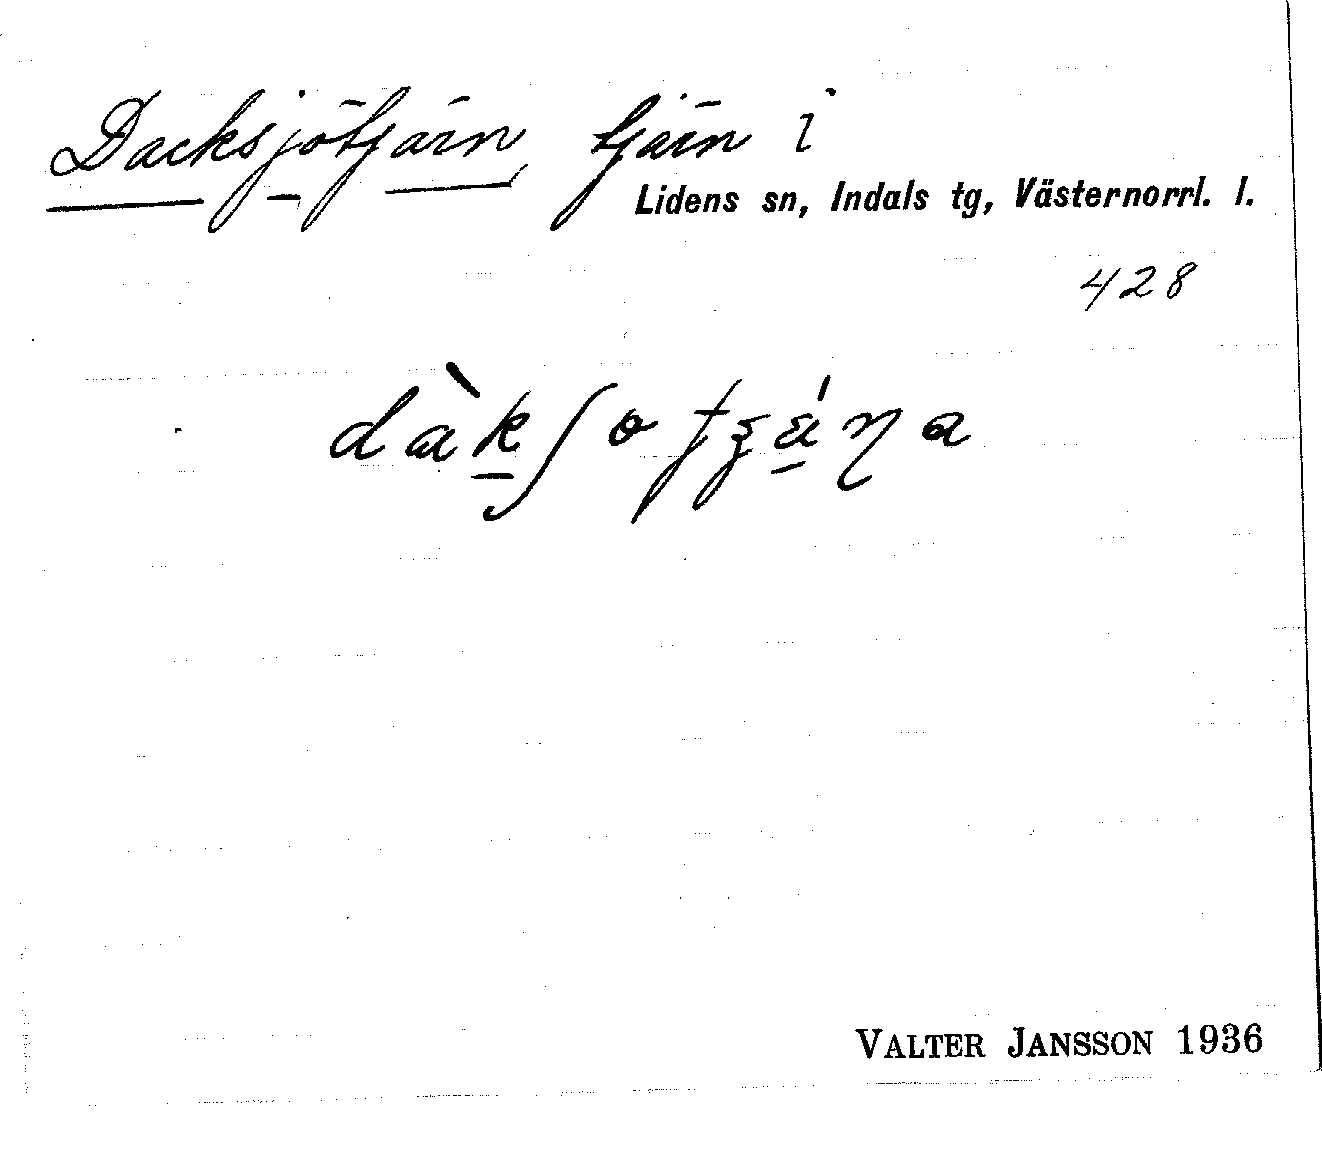 Dacksjötjärn, tjärn i
Lidens sn, Indals tg, Västernorrl. l.
428
VALTER JANSSON 1936